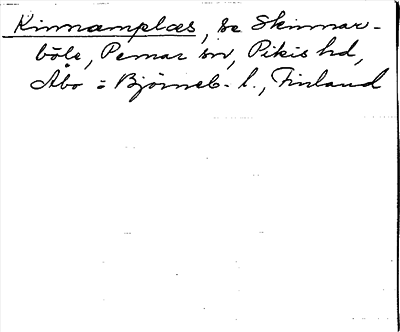 Kinnamplæs, se Skinnar-
böle, Pemar sn, Pikis hd,
Åbo - Björneb. l., Finland